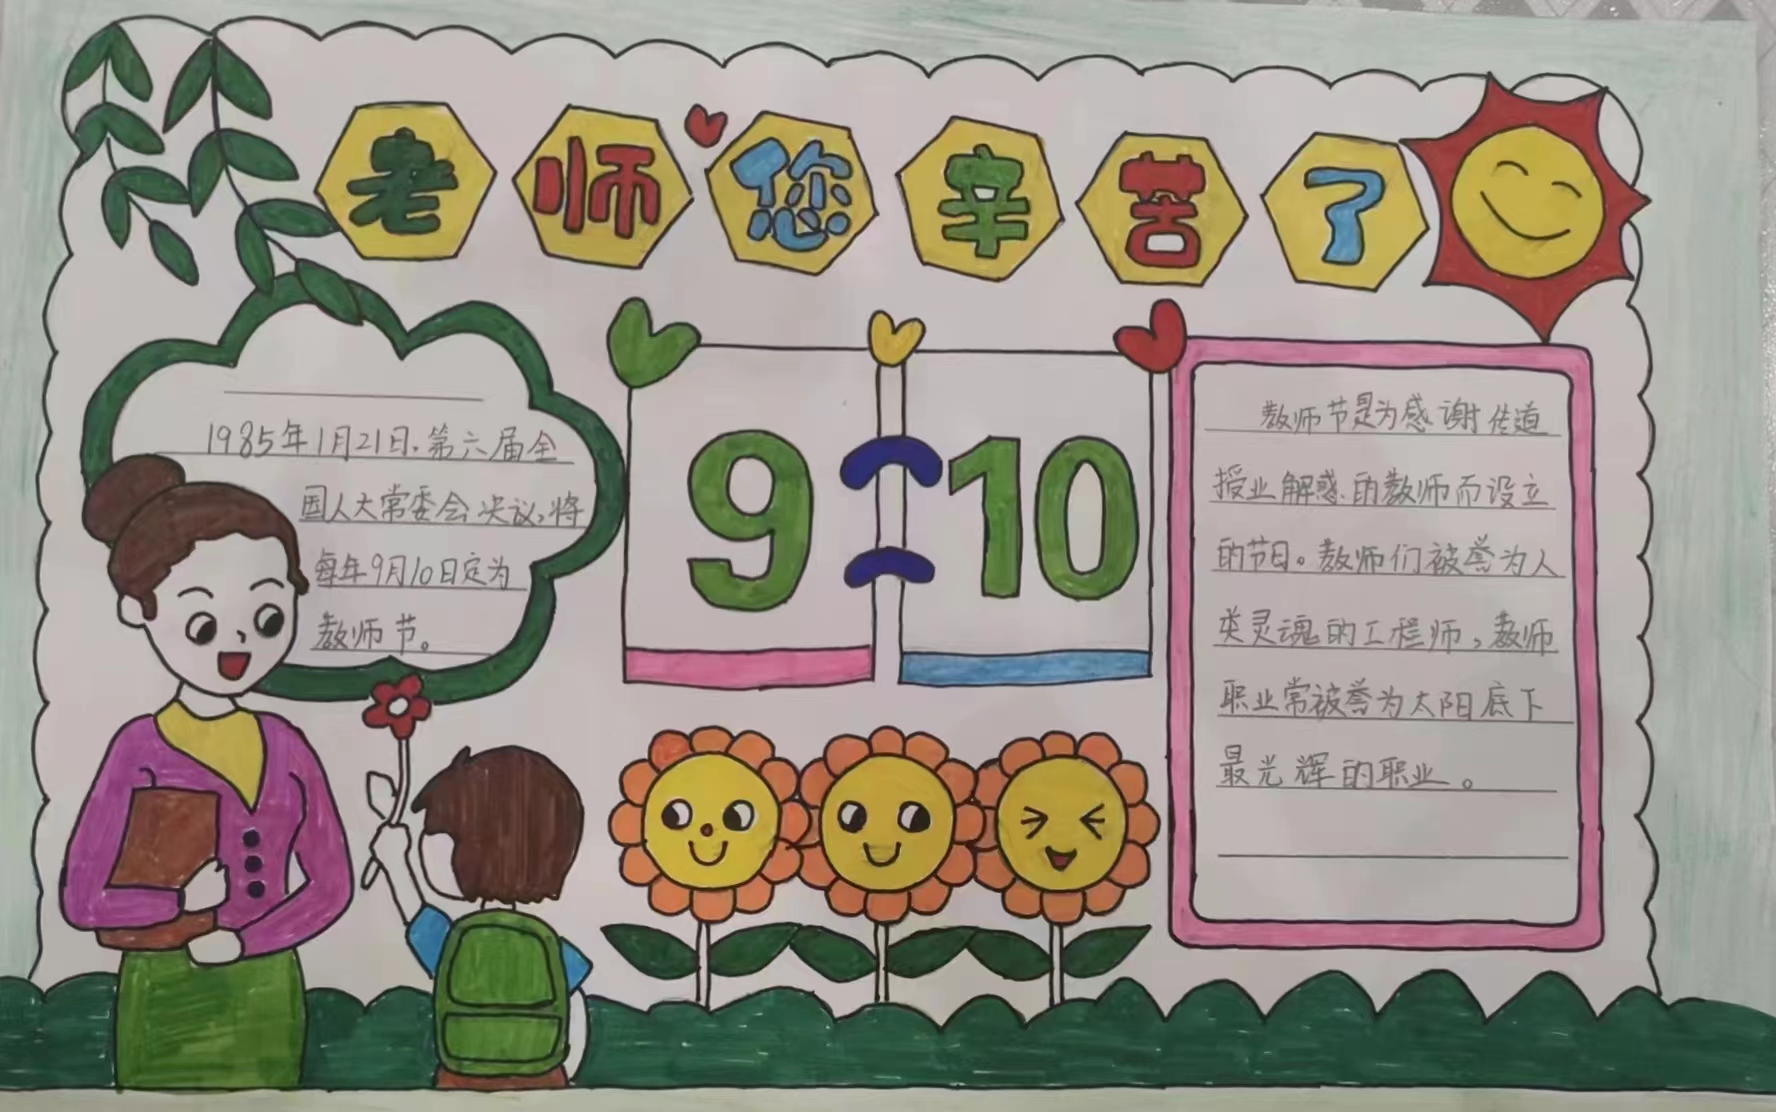 老师您辛苦了
1985年1月21日，第六届全
国人大常委会决议，将
每年9月10日定为
教师节。
9 10
教师节是为感谢传道
授业解惑的教师而设立
的节日。教师们被誉为人
类灵魂的工程师，教师
职业常被誉为太阳底下
最光辉的职业。